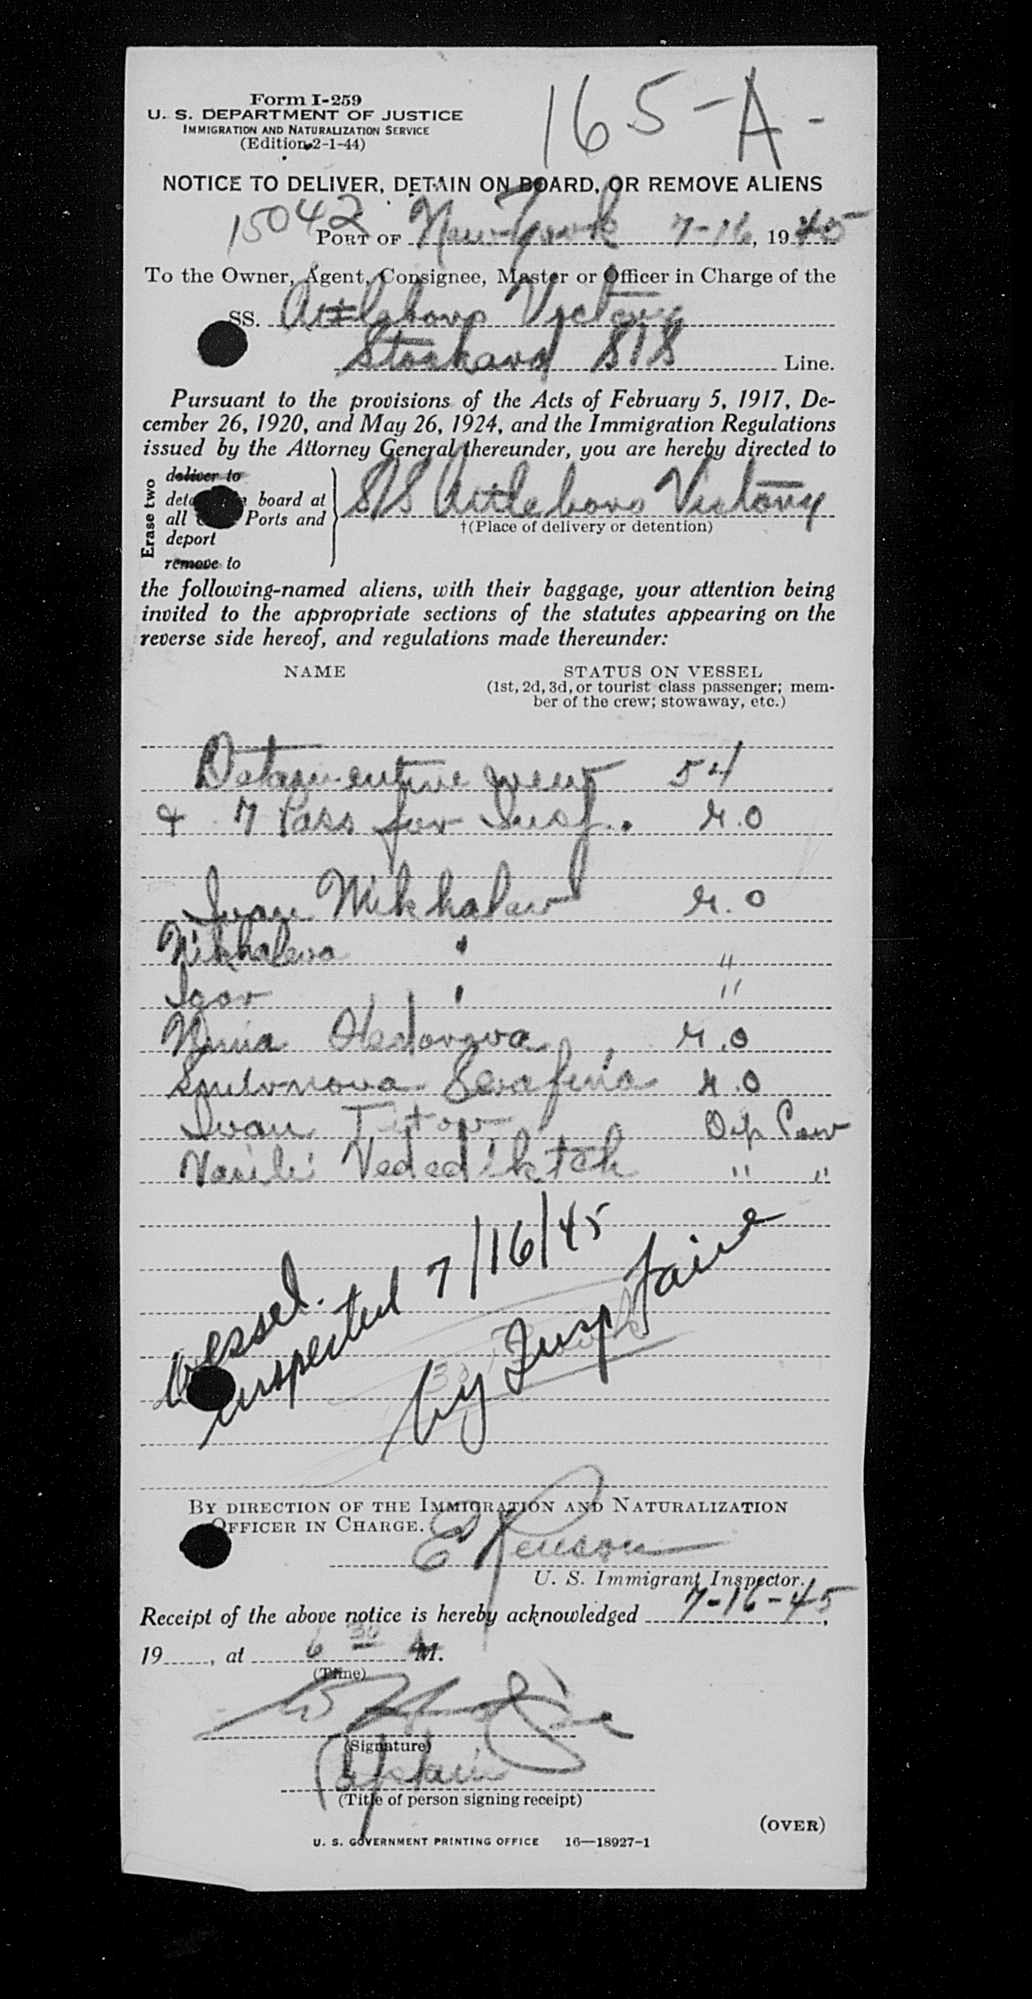 Form I-259
U. S. DEPARTMENT OF JUSTICE
IMMIGRATION AND NATURALIZATION SERVICE
(Edition 2-1-44)
165-A-
NOTICE TO DELIVER, DETAIN ON BOARD, OR REMOVE ALIENS
15042
PORT OF New York 7-16, 1945
To the Owner, Agent, Consignee, Master or Officer in Charge of the
SS. Attleboro Victory
Stockard S/S Line.
Pursuant to the provisions of the Acts of February 5, 1917, De-
cember 26, 1920, and May 26, 1924, and the Immigration Regulations
issued by the Attorney General thereunder, you are hereby directed to
Erase two
deliver to
board at
all Ports and
deport
remove to
S/S Attleboro Victory
†(Place of delivery or detention)
the following-named aliens, with their baggage, your attention being
invited to the appropriate sections of the statutes appearing on the
reverse side hereof, and regulations made thereunder:
NAME STATUS ON VESSEL
(1st, 2d, 3d, or tourist class passenger; mem-
ber of the crew; stowaway, etc.)
Detain entire crew 54
& 7 Pass for Insp.
Ivan Mikhalew
"
Igor " "
Olestorova
Serafina
Ivan Titov
"  "
Vessel
inspected 7/16/45
by Insp Faire
BY DIRECTION OF THE IMMIGRATION AND NATURALIZATION
OFFICER IN CHARGE.
U. S. Immigrant Inspector.
Receipt of the above notice is hereby acknowledged 7-16-45,
19......, at 6 30 A M.
(Time)
(Signature)
Captain
(Title of person signing receipt)
(OVER)
U. S. GOVERNMENT PRINTING OFFICE 16—18927-1